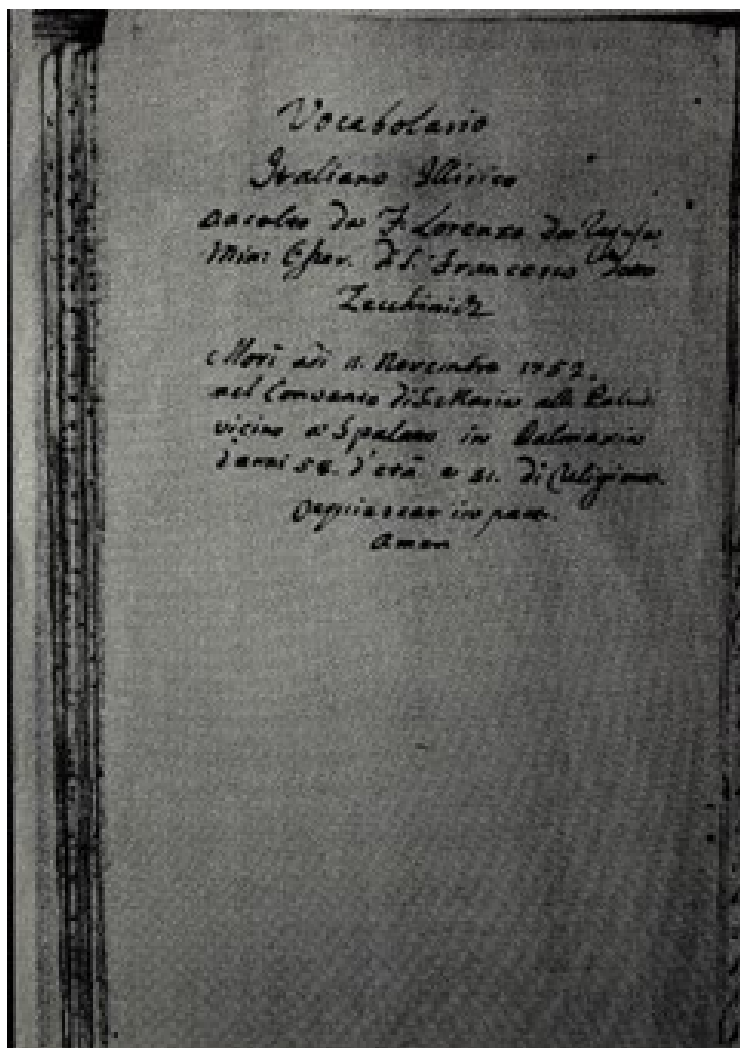 Vocabolario
Italiano Illirico
racolto da F. Lorenzo da
Min: Osser. di S. Francesco
Mori adi 11. Novembre 1752.
nel Convento di S. Maria alle Paludi
vicino a Spalato in Dalmazia
d'anni 58. d'età e 41. di Religione.
Requiescat in pace.
Amen